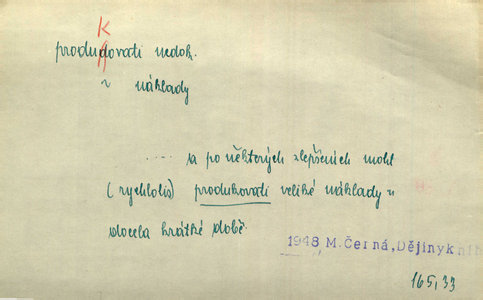 K
produkovati nedok.
~ náklady
..... ta po některých zlepšeních mohl
(rychlolis) produkovati veliké náklady v
docela krátké době.
1948 M.Černá,Dějinyknih
165,33